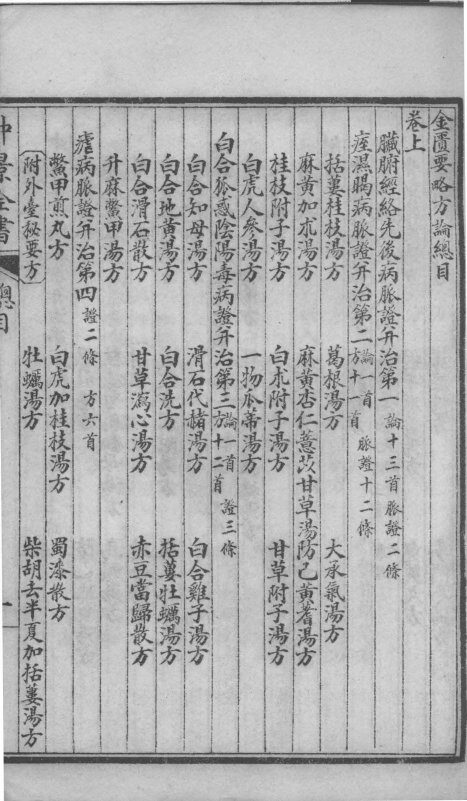 金匱要略方論總目
卷上
臟腑經絡先後病脈證并治第一 論十三首 脈證二條
痓濕暍病脈證并治第二 論一首 脈證十二條 方十一首
括蔞桂枝湯方 葛根湯方 大承氣湯方
麻黃加朮湯方 麻黃杏仁薏苡甘草湯方 防己黃耆湯方
桂枝附子湯方 白朮附子湯方 甘草附子湯方
白虎人參湯方 一物瓜蒂湯方
百合狐惑陰陽毒病證并治第三 論一首 證三條 方十二首
百合知母湯方 滑石代赭湯方 百合雞子湯方
百合地黃湯方 百合洗方 括蔞牡蠣湯方
百合滑石散方 甘草瀉心湯方 赤豆當歸散方
升麻鱉甲湯方
瘧病脈證并治第四 證二條 方六首
鱉甲煎丸方 白虎加桂枝湯方 蜀漆散方
附外臺秘要方 牡蠣湯方 柴胡去半夏加括蔞湯方
仲景全書 總目 一